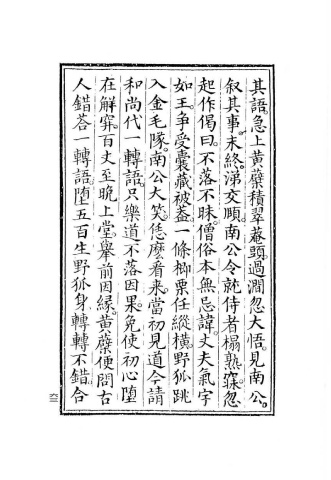 其語。急上黃蘗積翠菴頭。過澗忽大悟。見南公。
叙其事。未終。涕交頤。南公令就侍者榻熟寐。忽
起作偈曰。不落不昧。僧俗本無忌諱。丈夫氣宇
如王。爭受囊藏被葢。一條楖栗任縱橫。野狐跳
入金毛隊。南公大笑。恁麽看來。當初見道今請
和尚代一轉語。只樂道不落因果。免使初心墮
在解穽。百丈至晚上堂。舉前因緣。黃蘗便問古
人錯荅一轉語。墮五百生野狐身。轉轉不錯。合